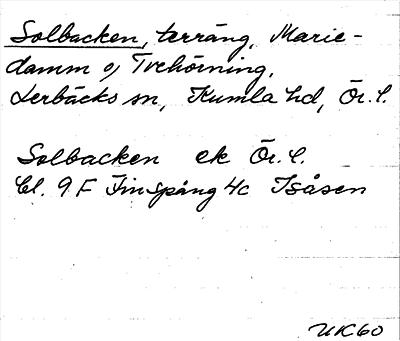 Solbacken, terräng, Marie-
damm o, Tvehörning,
Lerbäcks sn, Kumla hd, Ör. l.
Solbacken ek Ör. l.
bl. 9 F Finspång 4c Isåsen
UK60